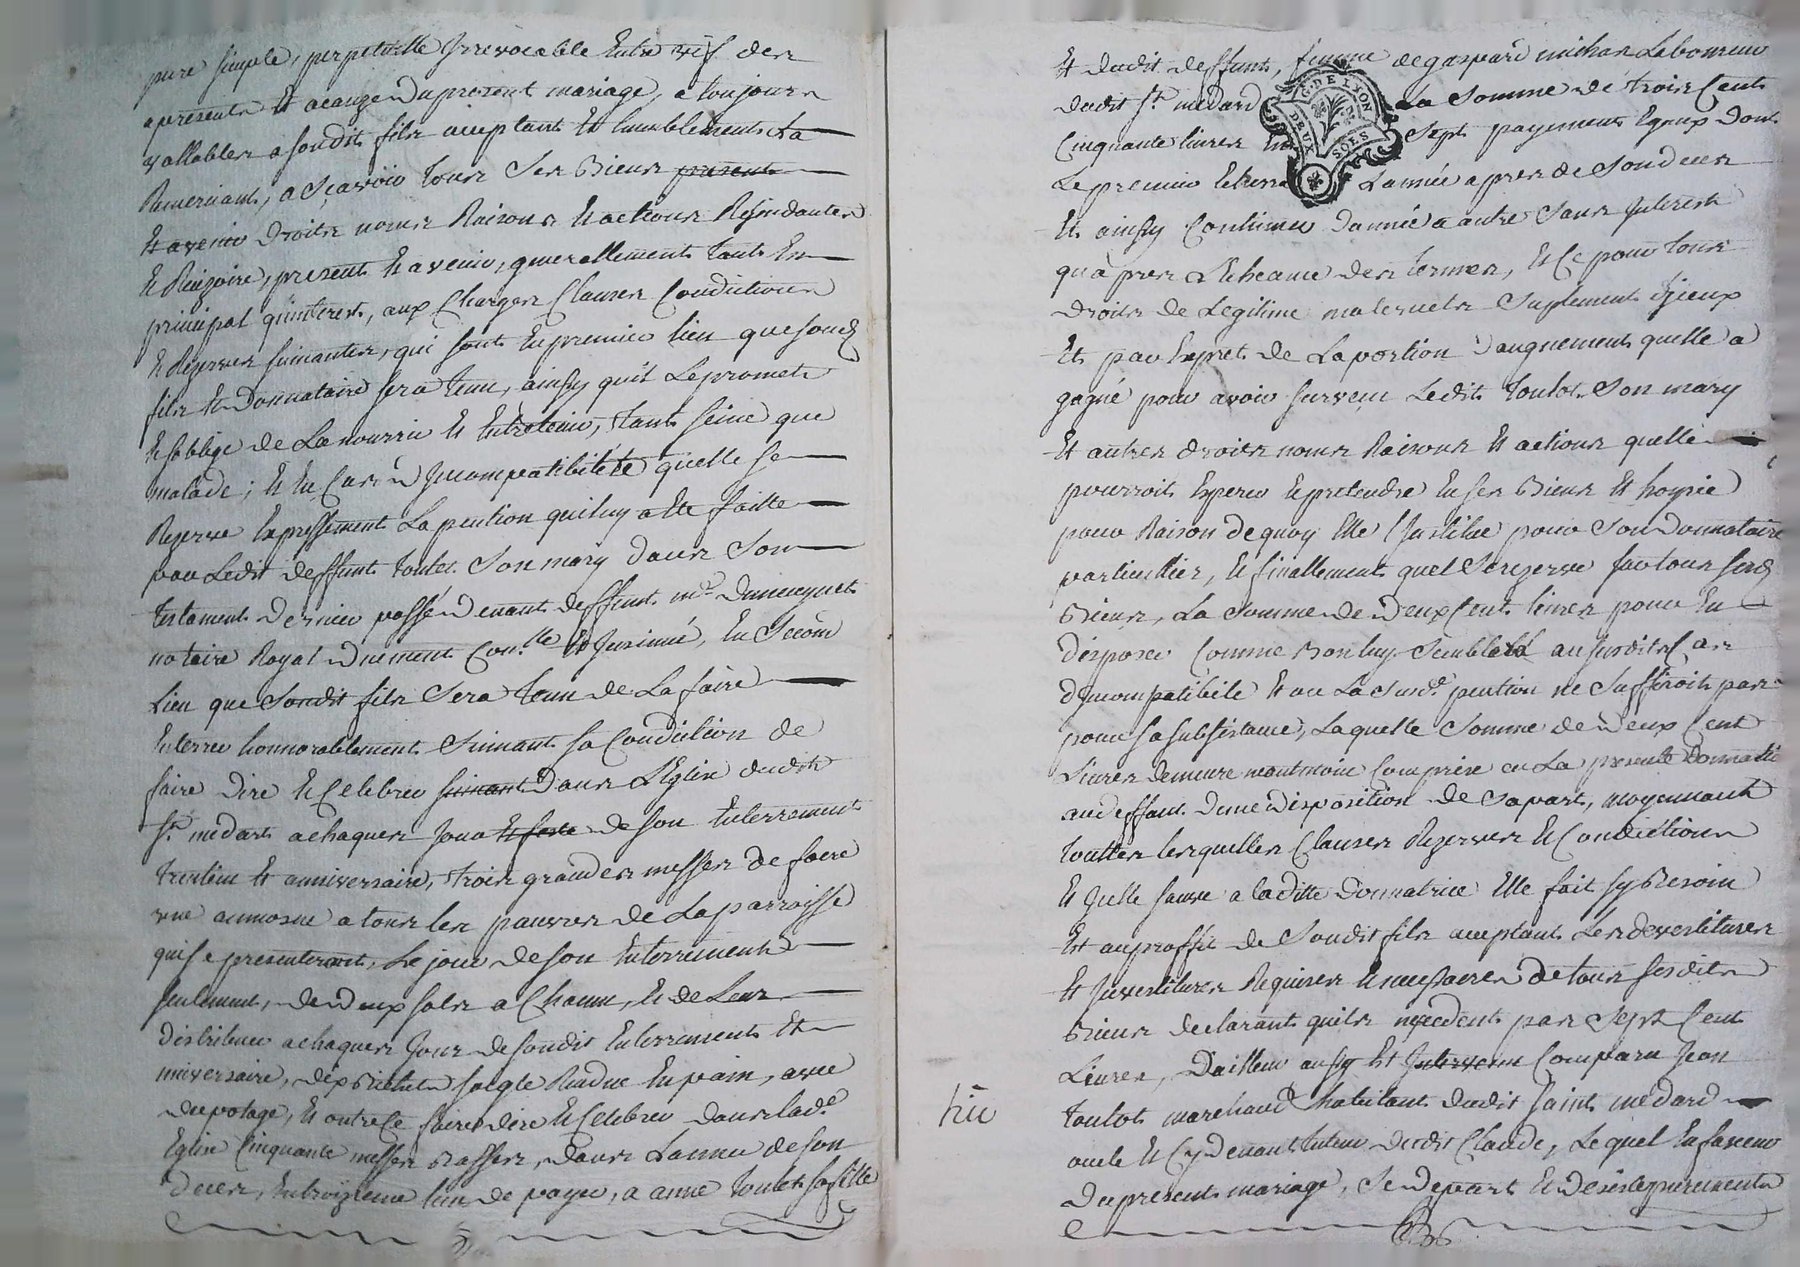 pure simple, perpetuelle Irrevocable Entre vif des
apresent Et acauze du present mariage, a toujours
vallables a sondit fils aceptant Et humblement La
Remerciant, a Sçavoir tous Ses Biens present
Et avenir droits noms Raisons Et actions Résindantes
Et Reizoire, present Et avenir, generallement tant En
principal qu'interest, aux Charges Clauses Condictions
Et Rézerves suivantes, qui sont En premier lien que sond
fils Et donnataire sera tenu, ainsy quil Le promet
Et soblige de La nourrir Et Entretenir, tant seine que
malade; Et En Cas d'Jncompatibiléte quelle se
Rezerve Expressement La pention quiluy a Ete faitte
par Ledit deffunt toulot Son mary dans Son
testament dernier passé devant deffunt me.
notaire Royal duement Con.lle Et Jnsinué, En Second
Lieu que Sondit fils Sera tenu de La faire
Enterrer honnorablement Suivant sa Condiction de
faire dire Et Celebrer suivant dans L'Eglise dudit
St. médart a chaques Jour Et feste de son Enterrement
trentein Et anniversaire, trois grandes messes de faire
une aumosne a tous les pauvres de La parroisse
quise presenteront, Le jour de son Enterrement
seulement, de deux sols a Chacun, Et de Leur
distribuer a chaques Jour de sondit Enterrement Et
niversaire, dix Bichets seigle Rendue En pain, avec
du potage, Et outre Ce faire dire Et Celebrer dans lad.e
Eglise Cinquante messes Basses, dans Lannée de son
deces, En troizieme lieu de payer, a anne toulot sa fille
Et dudit deffunt, femme de gaspard michon Laboureur
dudit St. médard La Somme de trois Cents
Cinquante livres En Sept payements Egaux dont
G. DE LYON
DEUX SOLS
Le premier Lannée apres de Son deces
Et ainsy Continuer d'année a autre Sans Interest
qu'apres L'Echeance des termes, Et Ce pour tous
droits de Legitime maternels Suplement d'jceux
Et par Exprest de La portion d'augnement quelle a
gagné pour avoir survecu Ledit toulot Son mary
Et autres droits noms Raisons Et actions quelle
pourroit Esperer Et pretendre En ses Biens Et hoyrie
pour Raison de quoy Elle L'Jnstitue pour Son donnataire
particullier, Et finallement quel Se rezerve sur tous sesd
Biens, La Somme de deux Cent livres pour En
disposer Comme Bon luy Semblera au susdit Cas
d'jncompatibilé Et ou La susd.e pention ne Suffiroit pas
pour sa subsistance, Laquelle Somme de deux Cent
Livres demeure neantmoins Comprise en La presente donnatio
au deffaut d'une disposition de Sa part, moyennant
touttes lesquelles Clauses Rezerves Et Condictions
Et Jcelle sauve a laditte donnatrice Elle fait sy Besoin
Est au proffit de Sondit fils aceptant Les devestitures
Et Jnvestitures Requises Et necessaires de tous sesdits
Biens declarant quils n'excedent pas Sept Cent
Livres, D'ailleur ausy Est Intervenu Comparu Jean
hic
toulot marchand habitant dudit saint médard
oncle Et Cy devant tuteur dudit Claude, Lequel En faveur
du present mariage, Se depart Et desiste purement